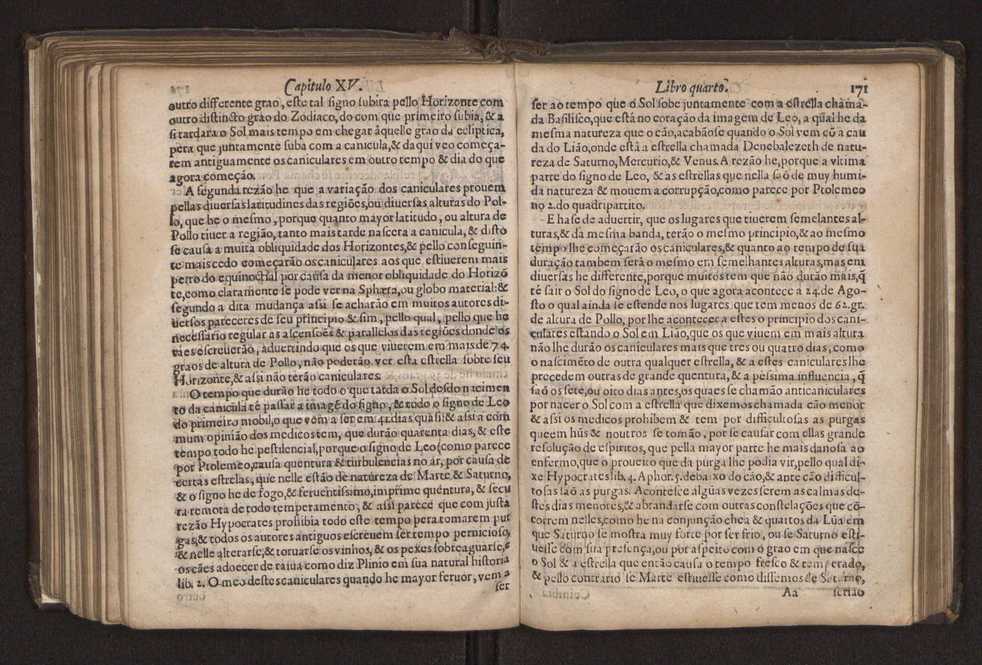 Capitulo XV.
outro differente grao, este tal signo subira pello Horizonte com
outro distincto grao do Zodiaco, do com que primeiro subia, & a
si tardara o Sol mais tempo em chegar àquelle grao da ecliptica,
pera que juntamente suba com a canicula, & da qui veo começa-
rem antiguamente os caniculares em outro tempo & dia do que
agora começão.
A segunda rezão he que a variação dos caniculares prouem
pellas diuersas latitudines das regiões, ou diuersas alturas do Pol-
lo, que he o mesmo, porque quanto mayor latitudo, ou altura de
Pollo tiuer a região, tanto mais tarde nascera a canicula, & disto
se causa a muita obliquidade dos Horizontes, & pello conseguin-
te mais cedo começarão os caniculares aos que estiuerem mais
perto do equinoctial por causa da menor obliquidade do Horizõ
te, como claramente se pode ver na Sphæra, ou globo material: &
segundo a dita mudança assi se acharão em muitos autores di-
uersos pareceres de seu principio & fim, pello qual, pello que he
necessario regular as ascensoẽs & parallelos das regiões donde os
taes escreuerão, aduertindo que os que viuerem em mais de 74.
graos de altura de Pollo, não poderão ver esta estrella sobre seu
Horizonte, & assi não terão caniculares.
O tempo que durão he todo o que tarda o Sol desdo nacimen
to da canicula tè passar a imagẽ do signo, & todo o signo de Leo
do primeiro mobil, o que vem a ser em 41. dias quasi: & assi a com
mum opinião dos medicos tem, que durão quarenta dias, & este
tempo todo he pestilencial, porque o signo de Leo (como parece
por Ptolemeo, causa quentura & turbulencias no ar, por causa de
certas estrellas, que nelle estão de natureza de Marte & Saturno,
& o signo he de fogo, & feruentissimo, imprime quentura, & secu
ra remota de todo temperamento, & assi parece que com justa
rezão Hypocrates prohibia todo este tempo pera tomarem pur
gas, & todos os autores antiguos escreuem ser tempo pernicioso,
& nelle alterarse, & toruarse os vinhos, & os pexes sobreaguarse, &
os cães adoecer de raiua como diz Plinio em sua natural historia
lib. 2. O meo destes caniculares quando he mayor feruor, vem a
ser
Libro quarto.
171
ser ao tempo que o Sol sobe juntamente com a estrella chama-
da Basilisco, que está no coração da imagem de Leo, a qual he da
mesma natureza que o cão, acabãose quando o Sol vem cõ a cau
da do Lião, onde està a estrella chamada Denebalezeth de natu-
reza de Saturno, Mercurio, & Venus. A rezão he, porque a vltima
parte do signo de Leo, & as estrellas que nella saõ de muy humi-
da natureza & mouem a corrupção, como parece por Ptolemeo
no 2. do quadripartito.
E hase de aduertir, que os lugares que tiuerem semelantes al-
turas, & da mesma banda, terão o mesmo principio, & ao mesmo
tempo lhe começarão os caniculares, & quanto ao tempo de sua
duração tambem será o mesmo em semelhantes alturas, mas em
diuersas he differente, porque muitos tem que não durão mais, q̃
tè sair o Sol do signo de Leo, o que agora acontece a 24. de Ago-
sto o qual ainda se estende nos lugares que tem menos de 62. gr.
de altura de Pollo, por lhe acontecer a estes o principio dos cani-
culares estando o Sol em Lião, que os que viuem em mais altura
não lhe durão os caniculares mais que tres ou quatro dias, como
o nascimẽto de outra qualquer estrella, & a estes caniculares lhe
precedem outras de grande quentura, & a pessima influencia, q̃
saõ os sete, ou oito dias antes, os quaes se chamão anticaniculares
por nacer o Sol com a estrella que dixemos chamada cão menor
& assi os medicos prohibem & tem por difficultosas as purgas
queem hũs & noutros se tomão, por se causar com ellas grande
resolução de espiritos, que pella mayor parte he mais danosa ao
enfermo, que o proueito que da purga lhe podia vir, pello qual di-
xe Hypocrates lib. 4. Aphor. 5. debaixo do cão, & ante cão difficul-
tosas saõ as purgas. Acontesce algũas vezes serem as calmas de-
stes dias menores, & abrandarse com outras constelações que cõ-
correm nelles, como he na conjunção chea & quartos da Lũa em
que Saturno se mostra muy forte por ser frio, ou se Saturno esti-
uesse com sua presença, ou por aspeito com o grao em que nasce
o Sol & a estrella que então causa o tempo fresco & temperado,
& pello contrario se Marte estiuesse como dissemos de Saturno,
Aa serião